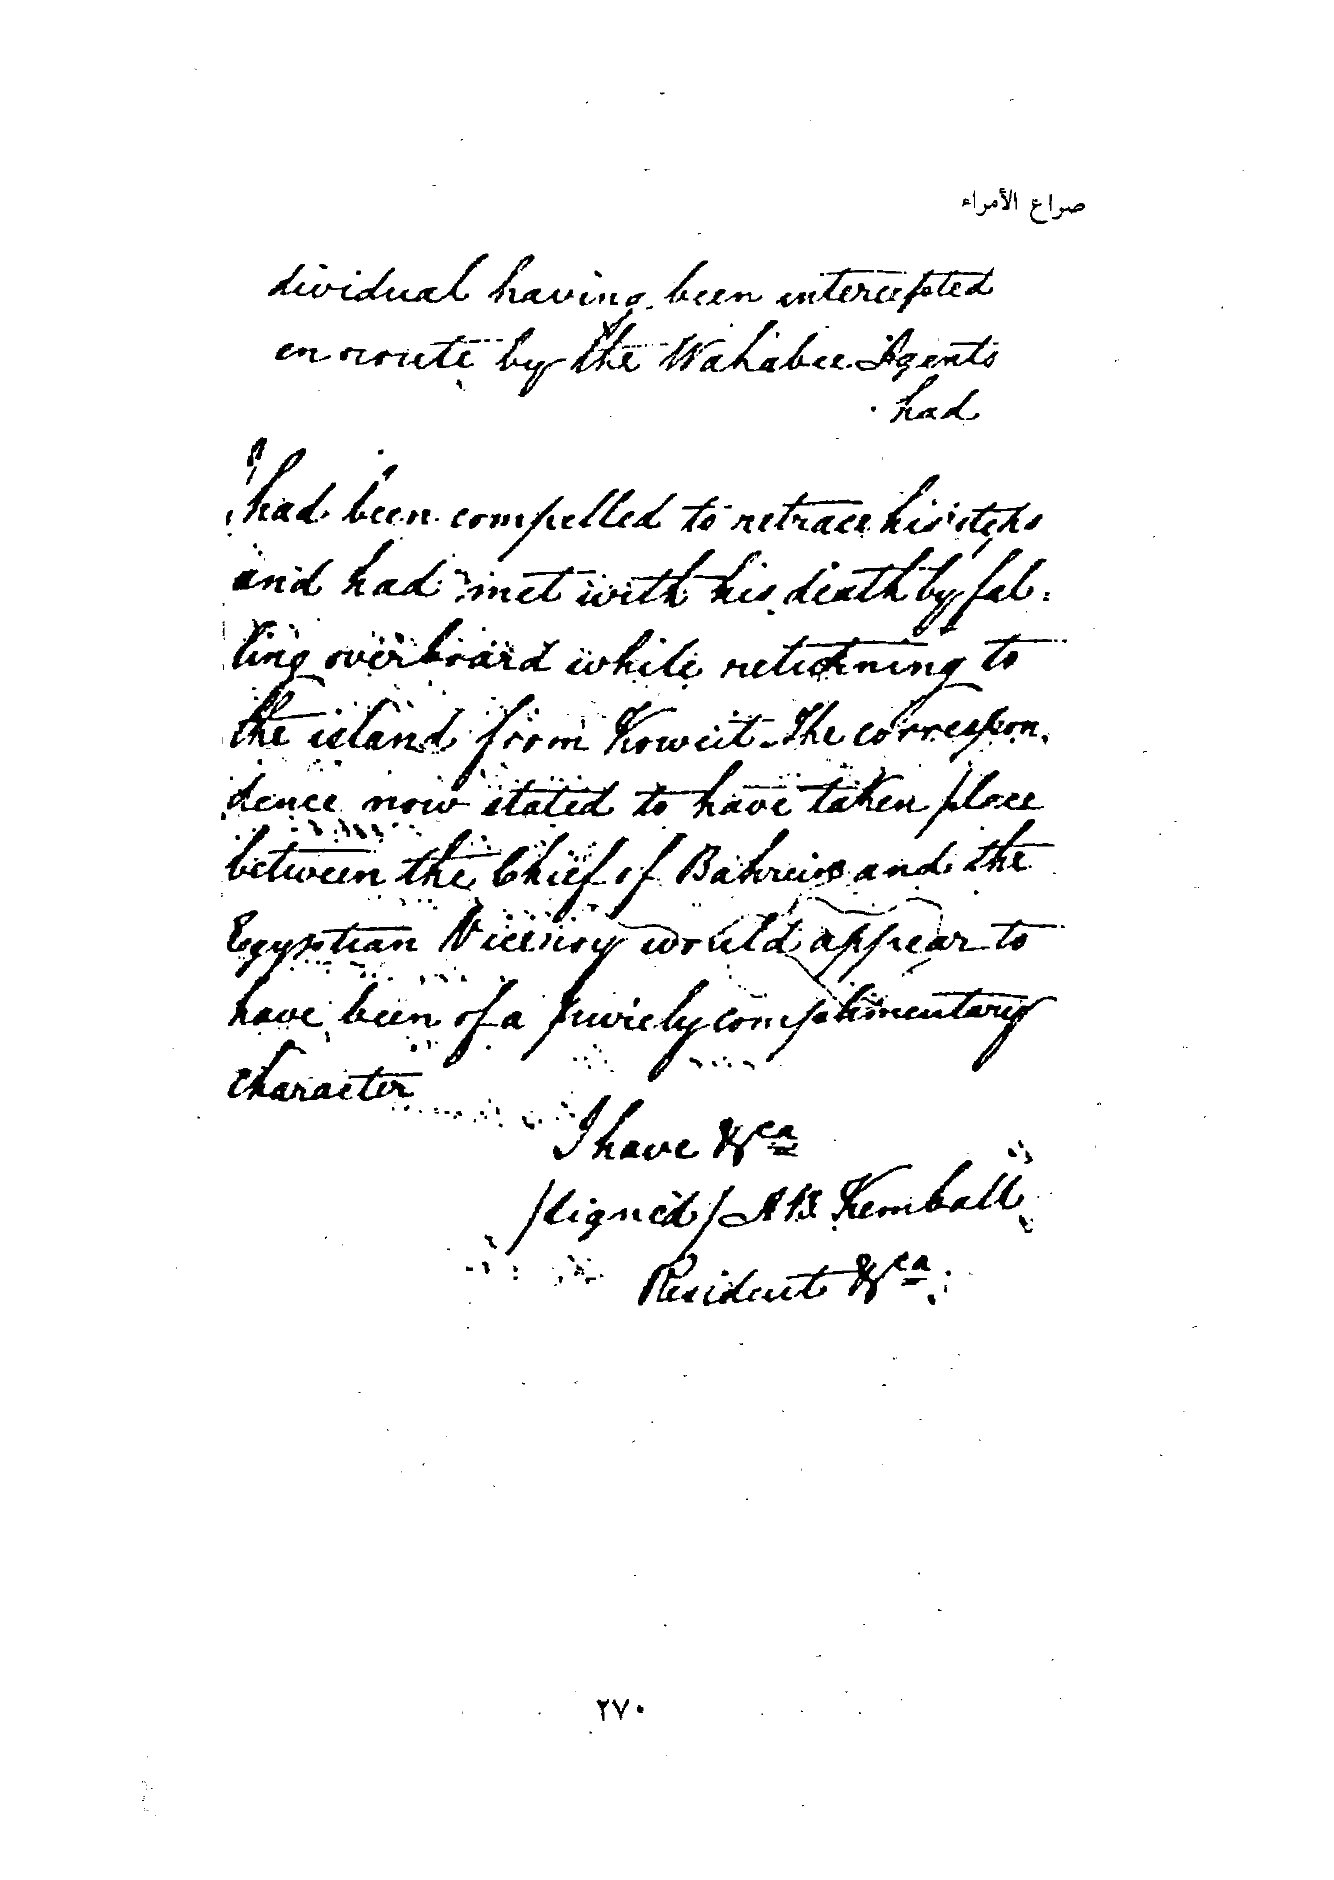 صراع الأمراء
dividual having been intercepted
en route by the Wahabee Agents
had
had been compelled to retrace his steps
and had met with his death by fal-
ling overboard while returning to
the island from Koweit. The correspon,
dence now stated to have taken place
between the Chief of Bahrein and the
Egyptian Viceroy would appear to
have been of a purely complimentary
character
I have &ca
/signed/ A B Kemball
Resident &ca
٢٧٠